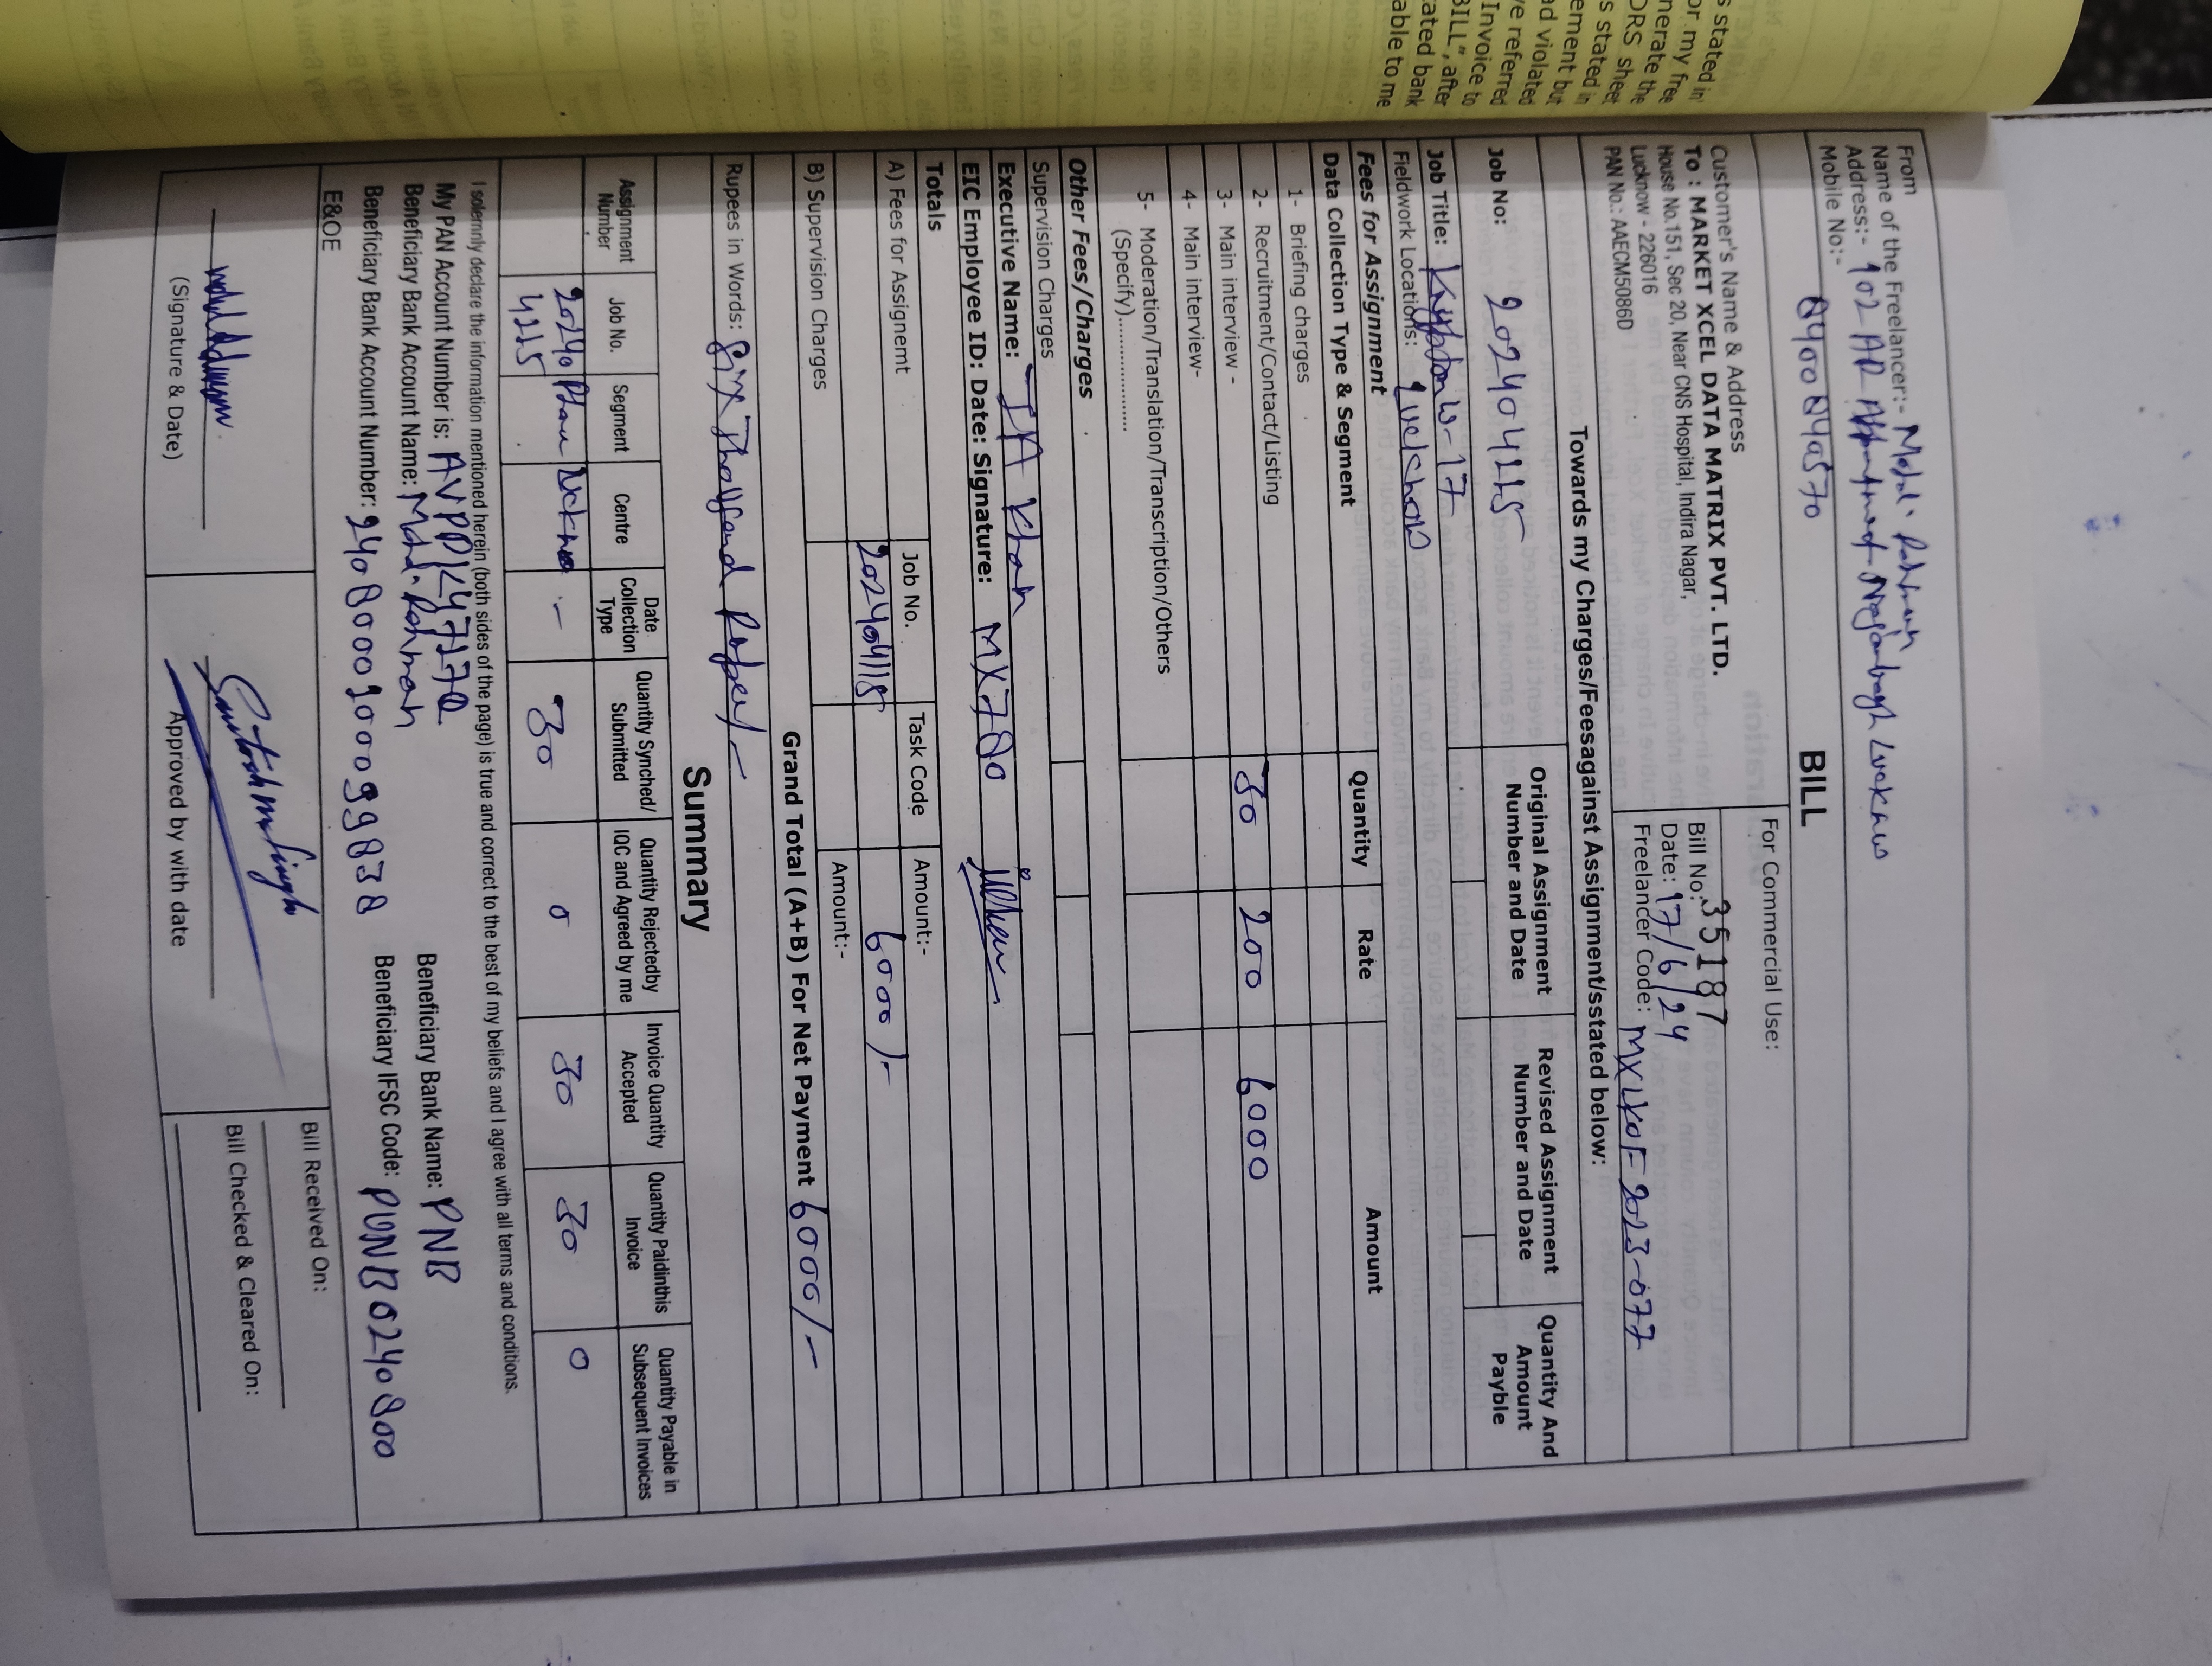 s stated in
or my free
nerate the
ORS sheet
s stated in
ement but
ad violated
ve referred
Invoice to
BILL", after
tated bank
able to me
From
Name of the Freelancer:- Mohd. Rahman
Address:- 102 AR Nagarbagh Lucknow
Mobile No:-
BILL
Customer's Name & Address
To : MARKET XCEL DATA MATRIX PVT. LTD.
House No.151, Sec 20, Near CNS Hospital, Indira Nagar,
Lucknow - 226016
PAN No.: AAECM5086D
For Commercial Use:
Bill No: 35187
Date: 17/6/24
Freelancer Code: MXLKOF-2023-077
Towards my Charges/Feesagainst Assignment/sstated below:
Job No:
Original Assignment Number and Date
Revised Assignment Number and Date
Quantity And Amount Payble
Job Title:
Fieldwork Locations: Lucknow
Fees for Assignment
Data Collection Type & Segment Quantity Rate Amount
1- Briefing charges
2- Recruitment/Contact/Listing 30 200 6000
3- Main interview -
4- Main interview-
5- Moderation/Translation/Transcription/Others
(Specify)..................
Other Fees/Charges
Supervision Charges
Executive Name: I A Khan
EIC Employee ID: Date: Signature: MX780
Totals Job No. Task Code Amount:-
A) Fees for Assignemt 6000/-
B) Supervision Charges Amount:-
Grand Total (A+B) For Net Payment 6000/-
Rupees in Words: Six Thousand
Summary
Assignment Number Job No. Segment Centre Date Collection Type Quantity Synched/ Submitted Quantity Rejectedby IQC and Agreed by me Invoice Quantity Accepted Quantity Paidinthis Invoice Quantity Payable in Subsequent Invoices
- 30 0 30 30 0
I solemnly declare the information mentioned herein (both sides of the page) is true and correct to the best of my beliefs and I agree with all terms and conditions.
My PAN Account Number is:
Beneficiary Bank Name: PNB
Beneficiary Bank Account Name: Mohd. Rahman
Beneficiary Bank Account Number:
Beneficiary IFSC Code: PUNB0240800
E&OE
(Signature & Date)
Approved by with date
Bill Received On:
Bill Checked & Cleared On: